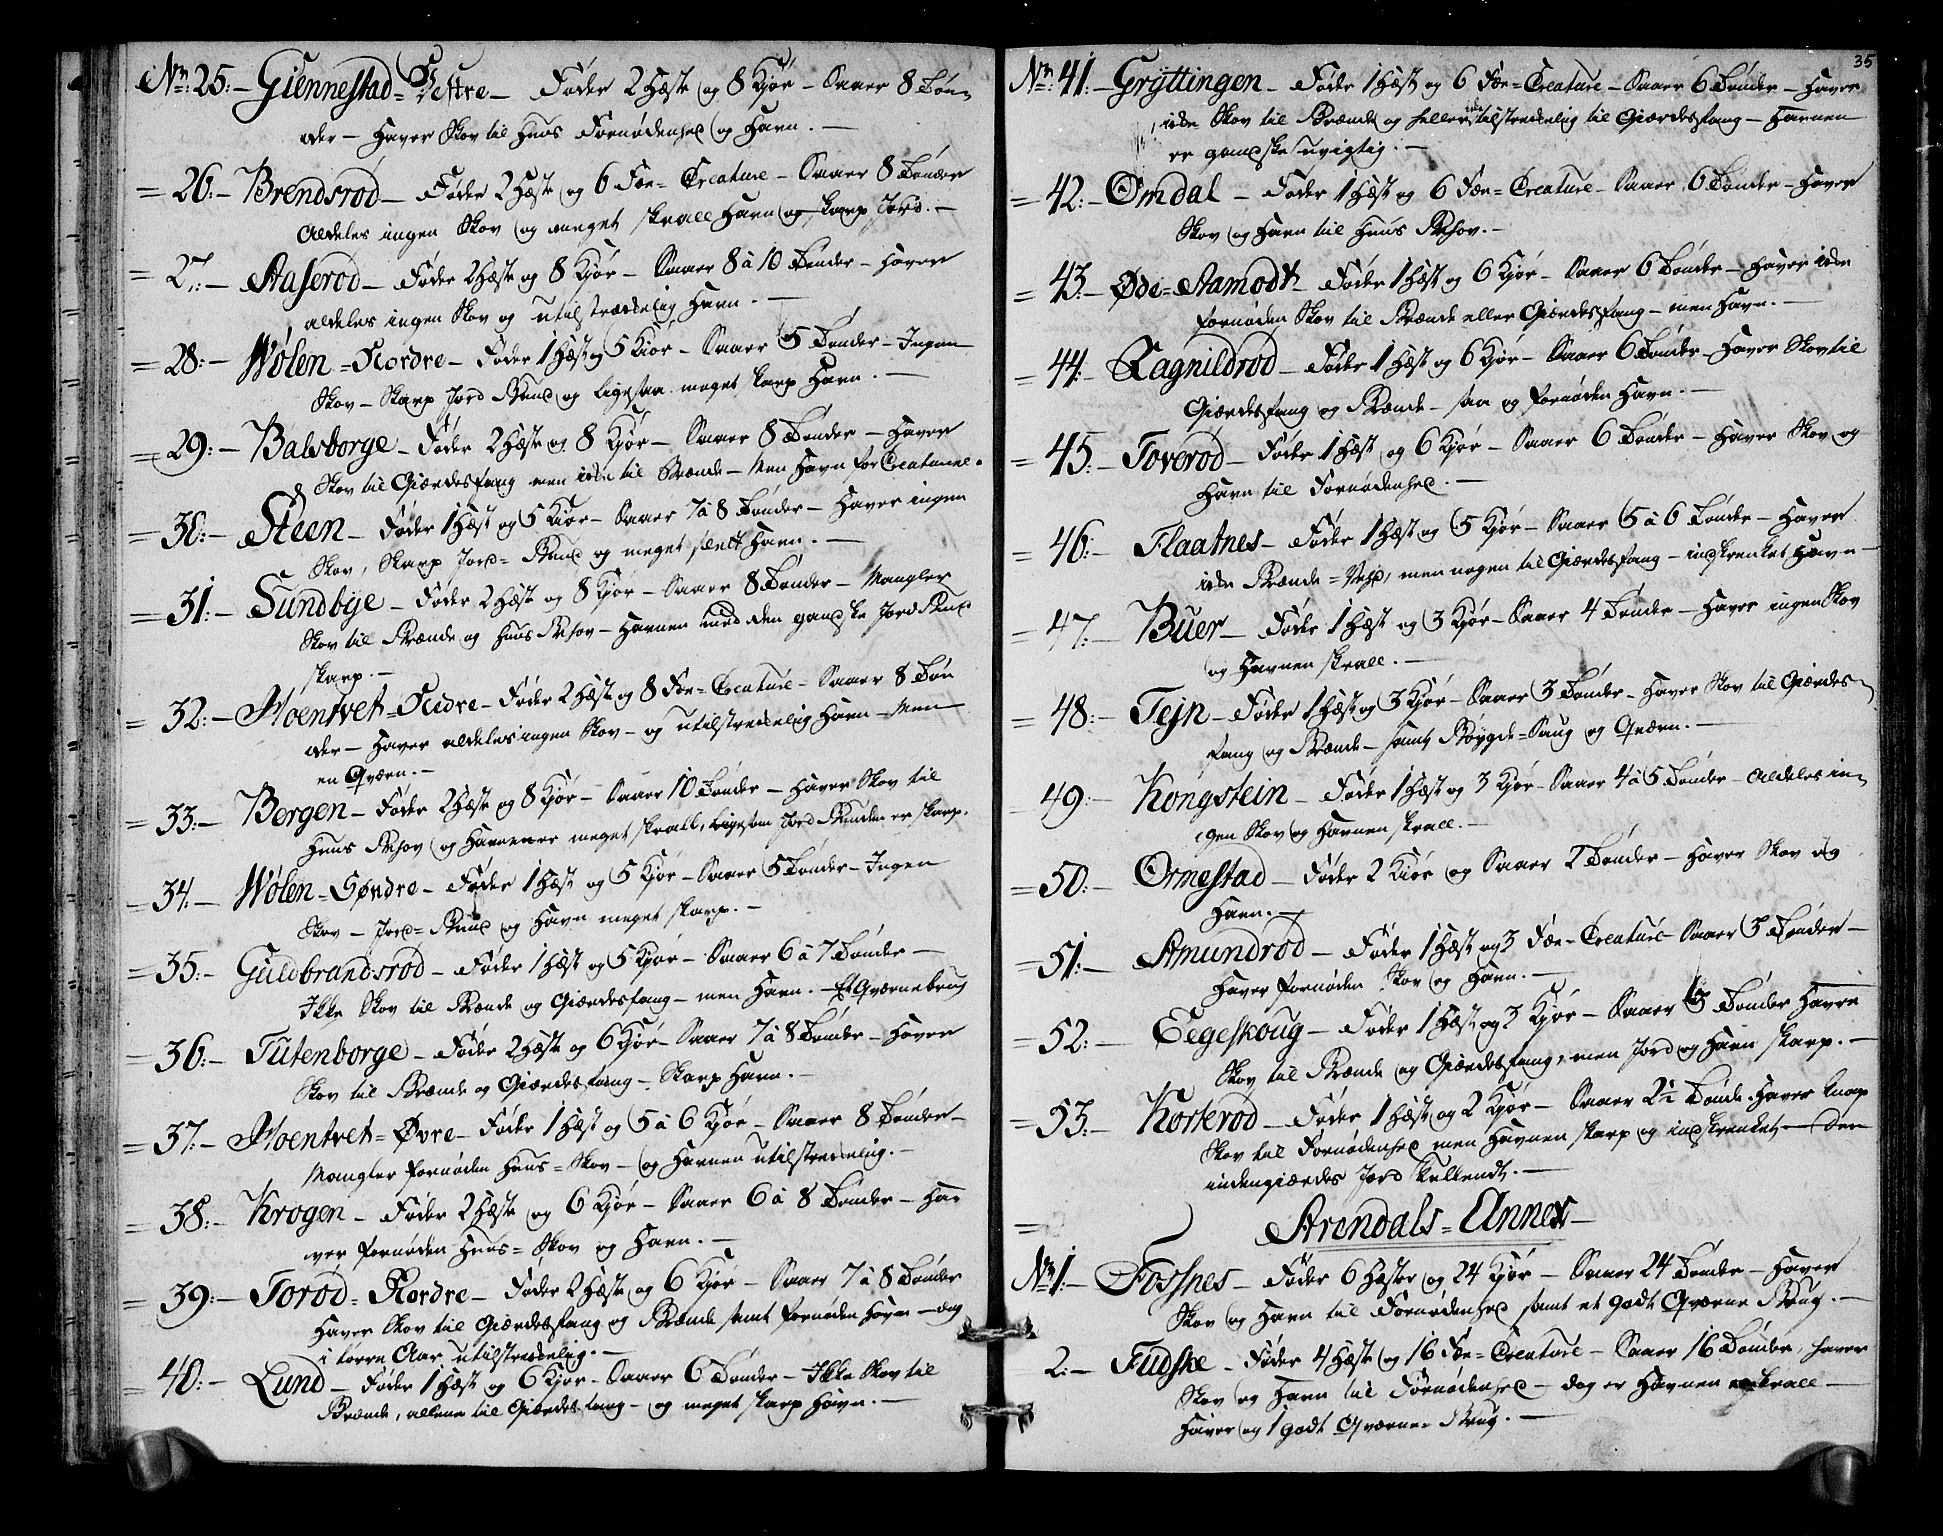 No: 25:- Giennestad = Vestre - Føder 2 Hæste og 8 Kjør - Saaer 8 Tøn-
der - Haver Skov til Huus Fornødenhed og Havn. -
= 26:- Brendsrød - Føder 2 Hæste og 6 Fæ = Creature - Saaer 8 Tønder
Aldeles ingen Skov og meget skrall Havn og skarp Jord. -
= 27:- Aaserød - Føder 2 Hæste og 8 Kjør - Saaer 8 à 10 Tønder - Haver
aldeles ingen Skov og utilstrædelig Havn. -
= 28:- Wølen = Nordre - Føder 1 Hæst og 5 Kiør - Saaer 5 Tønder - Ingen
Skov - Skarp Jord Bund og ligesaa meget skarp Havn. -
= 29:- Balsborge - Føder 2 Hæste og 8 Kjør - Saaer 8 Tønder - Haver
Skov til Giærdesfang men icke til Brænde - Men Havn for Creature.
= 30:- Steen - Føder 1 Hæst og 5 Kiør - Saaer 7 à 8 Tønder - Haver ingen
Skov, Skarp Jord = Bund og meget slett Havn. -
= 31:- Sundbye - Føder 2 Hæste og 8 Kjør - Saaer 8 Tønder - Mangler
Skov til Brænde og Huus Behov - Havnen med den gandske Jord Bund
skarp. -
= 32:- Moentvet = Nedre - Føder 2 Hæste og 8 Fæ = Creature - Saaer 8 Tøn
der - Haver aldeles ingen Skov - og utilstrædelig Havn - Men
en Qværn. -
= 33:- Bergen - Føder 2 Hæste og 8 Kjør - Saaer 10 Tønder - Haver Skov til
Huus Behov og Havnen er meget skrall, ligesom Jord Bunden er skarp.
= 34:- Wølen = Søndre - Føder 1 Hæst og 5 Kjør - Saaer 5 Tønder - Ingen
Skov - Jord = Bund og Havn meget skarp. -
= 35:- Guldbrandsrød - Føder 1 Hæst og 5 Kjør - Saaer 6 à 7 Tønder -
Ikke Skov til Brænde og Giærdesfang - men Havn. - Et Qværnebrug
= 36:- Tutenborge - Føder 2 Hæste og 6 Kjør - Saaer 7 à 8 Tønder - Haver
Skov til Brænde og Giærdesfang - Skarp Havn. -
= 37:- Moentvet = Øvre - Føder 1 Hæst og 5 à 6 Kjør - Saaer 8 Tønder -
Mangler fornøden Huus = Skov - og Havnen utilstrædelig. -
= 38:- Krogen - Føder 2 Hæste og 6 Kjør - Saaer 6 à 8 Tønder - Ha=
ver fornøden Huus = Skov og Havn. -
= 39:- Torød = Nordre - Føder 2 Hæste og 6 Kjør - Saaer 7 à 8 Tønder
Haver Skov til Giærdesfang og Brænde samt fornøden Havn - dog
i tørre Aar utilstrædelig. -
= 40:- Lund - Føder 1 Hæst og 6 Kjør - Saaer 6 Tønder - Ikke Skov til
Brænde, allene til Giærdesfang - og meget skarp Havn. -
35
No: 41:- Gryttingen - Føder 1 Hæst og 6 Fæ = Creature - Saaer 6 Tønder - Haver
icke Skov til Brænde og hellers icke tilstrædelig til Giærdesfang - Havnen
er gandske uvigtig. -
= 42:- Omdal - Føder 1 Hæst og 6 Fæ = Creature - Saaer 6 Tønder - Haver
Skov og Havn til Huus Behov. -
= 43:- Øde = Aamodt - Føder 1 Hæst og 6 Kjør - Saaer 6 Tønder - Haver icke
fornøden Skov til Brænde eller Giærdesfang - men Havn. -
= 44:- Ragnildrød - Føder 1 Hæst og 6 Kjør - Saaer 6 Tønder - Haver Skov til
Giærdesfang og Brænde - saa og fornøden Havn. -
= 45:- Toverød - Føder 1 Hæst og 6 Kjør - Saaer 6 Tønder - Haver Skov og
Havn til Fornødenhed. -
= 46:- Flaatnes - Føder 1 Hæst og 5 Kjør - Saaer 5 à 6 Tønder - Haver
icke Brænde = Ved, men nogen til Giærdesfang - indskrenket Havn -
= 47:- Buer - Føder 1 Hæst og 3 Kjør - Saaer 4 Tønder - Haver ingen Skov
og Havnen skrall. -
= 48:- Tejn - Føder 1 Hæst og 3 Kjør - Saaer 3 Tønder - Haver Skov til Giærdes-
fang og Brænde - samt Bøygde = Saug og Qværn. -
= 49:- Kongstein - Føder 1 Hæst og 3 Kjør - Saaer 4 à 5 Tønder - Aldeles in-
gen Skov og Havnen skrall. -
= 50:- Ormestad - Føder 2 Kiør og Saaer 2 Tønder - Haver Skov og
Havn. -
= 51:- Amundrød - Føder 1 Hæst og 3 Fæ = Creature - Saaer 3 Tønder -
Haver fornøden Skov og Havn. -
= 52:- Eegeskoug - Føder 1 Hæst og 3 Kjør - Saaer 3 Tønder Haver
Skov til Brænde og Giærdesfang, men Jord og Havn skarp. -
= 53:- Korterød - Føder 1 Hæst og 2 Kjør - Saaer 2½ Tønde - Haver knap
Skov til Fornødenhed men Havnen skarp og indskrenket - Den
indengiærdes Jord
Arendals = Annex -
No: 1:- Fossnes - Føder 6 Hæster og 24 Kjør - Saaer 24 Tønder - Haver
Skov og Havn til Fornødenhed samt et godt Qværne Brug. -
2:- Fudske - Føder 4 Hæste og 16 Fæ = Creature - Saaer 16 Tønder, haver
Skov og Havn til Fornødenhed - dog er Havnen skrall -
Haver og 1 godt Qværne Brug. -